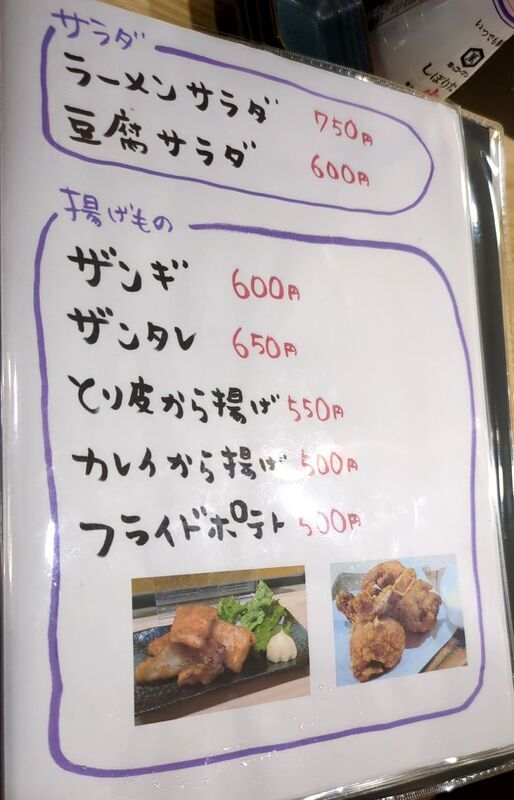 いつでも
しぼりた
サラダ
ラーメンサラダ 750円
豆腐サラダ 600円
揚げもの
ザンギ 600円
ザンタレ 650円
とり皮から揚げ 550円
カレイから揚げ 500円
フライドポテト 500円